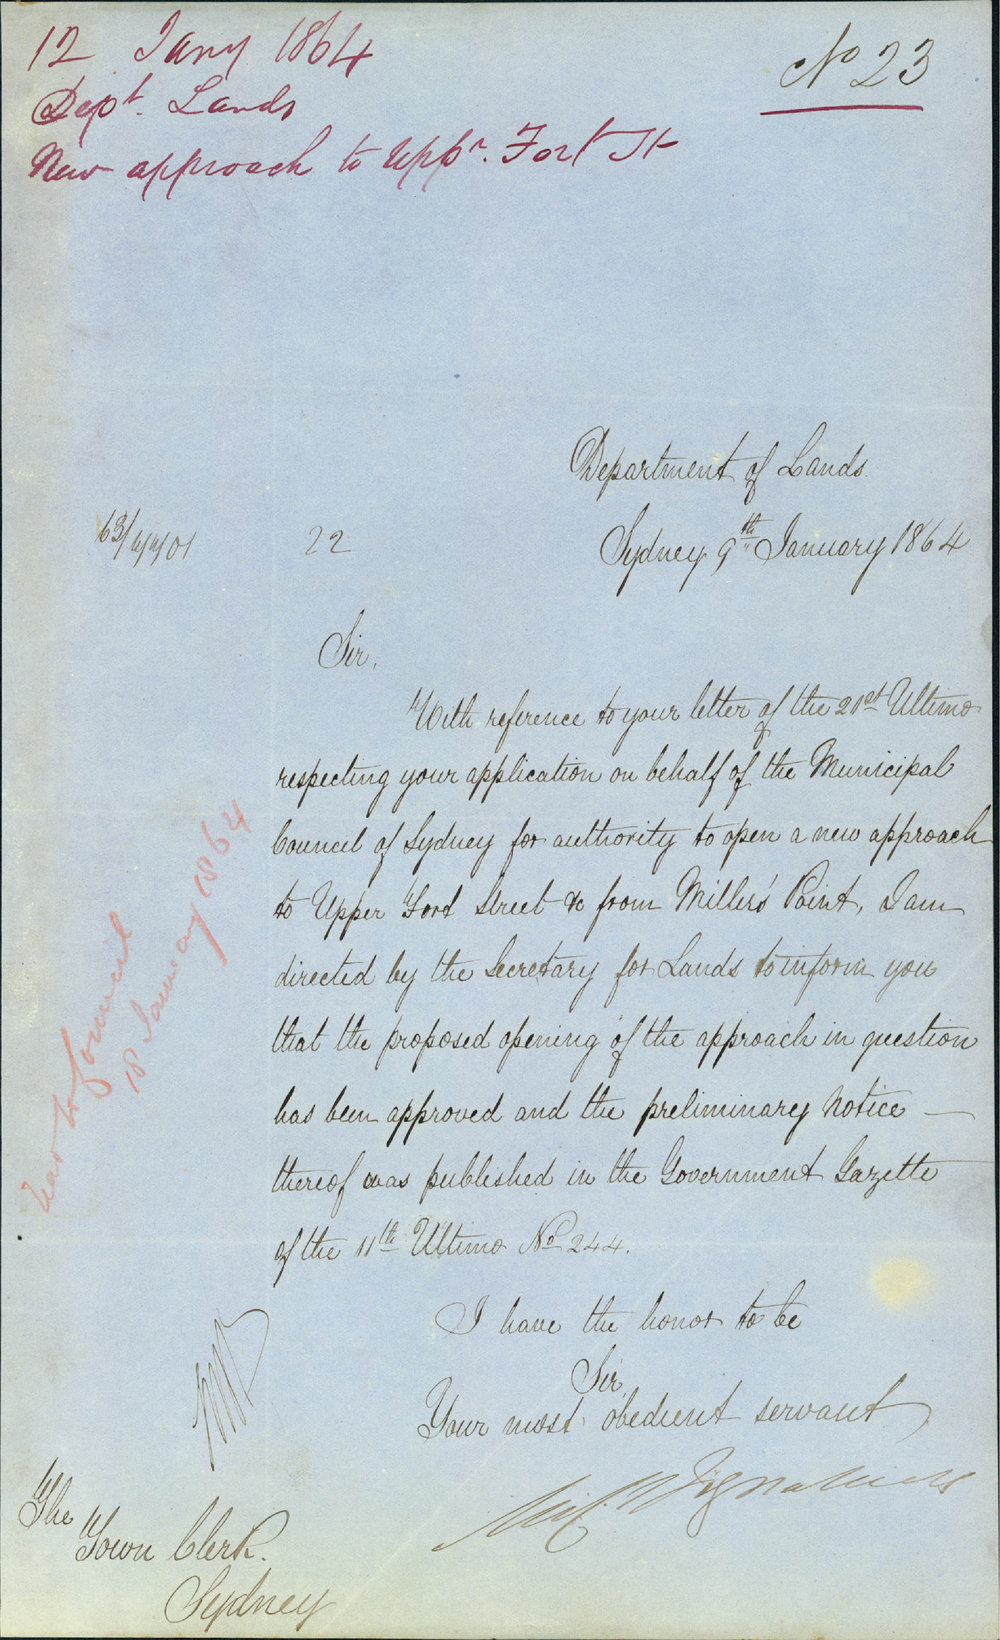 12 Jany 1864
Nº 23
Dept. Lands
New approach to Uppr. Fort St
Department of Lands
63/4401
22
Sydney 9th January 1864
Sir,
With reference to your letter of the 21st Ultimo
respecting your application on behalf of the Municipal
Council of Sydney for authority to open a new approach
to Upper Fort Street &c from Millers' Point, I am
directed by the Secretary for Lands to inform you
that the proposed opening of the approach in question
has been approved and the preliminary Notice
thereof was published in the Government Gazette
of the 11th Ultimo No 244.
I have the honor to be
Sir
Your most obedient servant
The
Town Clerk.
Sydney
to Council
18 January 1864